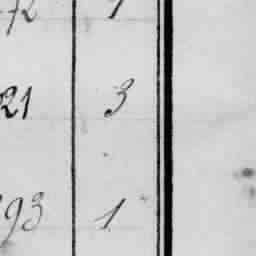 72 1
21 3
93 1